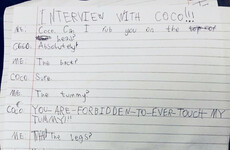 INTERVIEW WITH COCO!!!
ME: Coco, Can I rub you on the
head?
COCO: Absolutely!
ME: The back?
COCO: Sure.
ME: The tummy?
COCO: YOU-ARE-FORBIDDEN-TO-EVER-TOUCH MY
TUMMY!!!
ME: The legs?